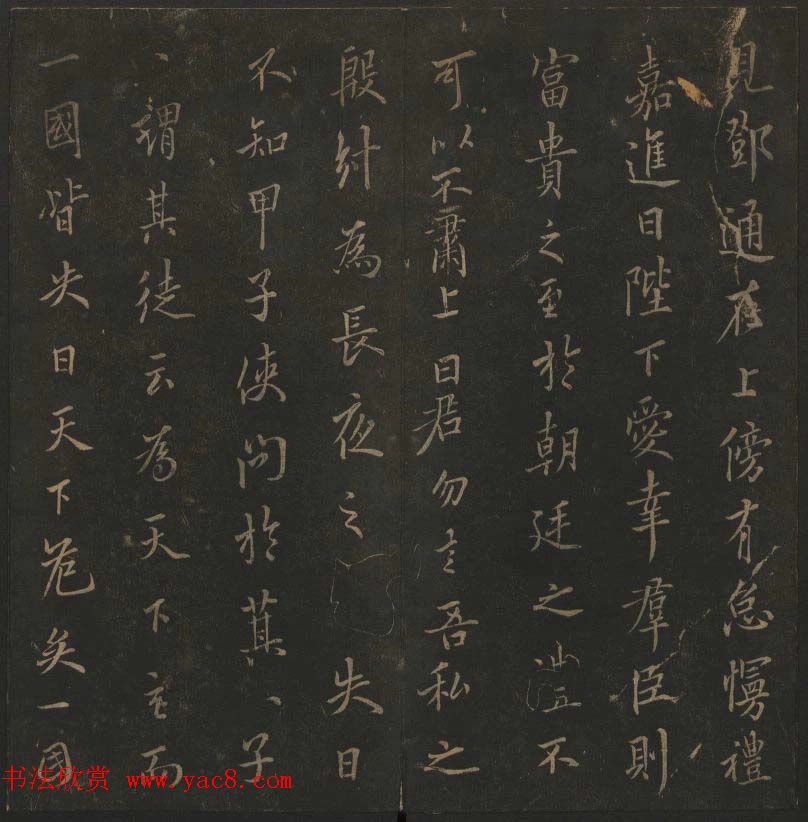 見鄧通在上傍有怠慢禮
嘉進曰陛下愛幸羣臣則
富貴之至於朝廷之不
可以不肅上曰君勿言吾私之
殷紂為長夜之失日
不知甲子使問於箕〻子
〻謂其徒云為天下主而
一國皆失日天下危矣一國
书法欣赏 www.yac8.com